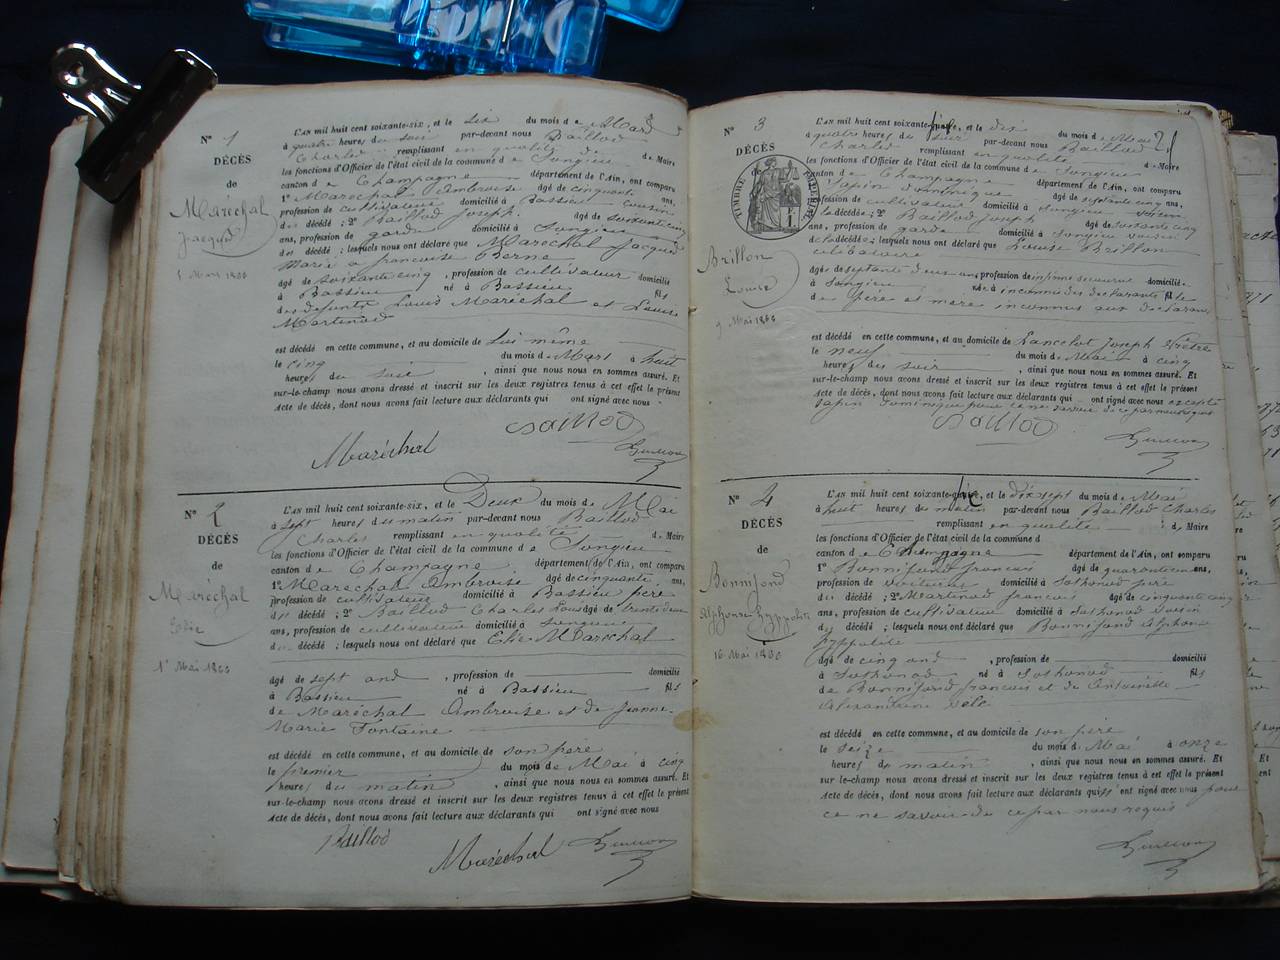 N° 1
DÉCÈS
de
Maréchal
Jacques
5 Mars 1866
L'AN mil huit cent soixante-six, et le six du mois de Mars
à quatre heures du soir par-devant nous Baillod
Charles remplissant en qualité de Maire
les fonctions d'Officier de l'état civil de la commune de Songieu
canton de Champagne département de l'Ain, ont comparu
1° Marechal Ambroise âgé de cinquante ans,
profession de cultivateur domicilié à Bassieu cousin
du décédé ; 2° Baillod Joseph âgé de soixante cinq
ans, profession de garde domicilié à Songieu
du décédé ; lesquels nous ont déclaré que Maréchal Jacques
Marié a francoise Berne
âgé de soixante cinq , profession de cultivateur domicilié
à Bassieu né à Bassieu fils
des defunts Louis Maréchal et Louise
Martinod
est décédé en cette commune, et au domicile de Lui même
le cinq du mois de Mars à huit
heures du soir , ainsi que nous nous en sommes assuré. Et
sur-le-champ nous avons dressé et inscrit sur les deux registres tenus à cet effet le présent
Acte de décès, dont nous avons fait lecture aux déclarants qui ont signé avec nous
Baillod
Maréchal
N° 2
DÉCÈS
de
Maréchal
Elie
1er Mai 1866
L'AN mil huit cent soixante-six, et le Deux du mois de Mai
à sept heures du matin par-devant nous Baillod
Charles remplissant en qualité de Maire
les fonctions d'Officier de l'état civil de la commune de Songieu
canton de Champagne département de l'Ain, ont comparu
1° Maréchal Ambroise âgé de cinquante ans,
profession de cultivateur domicilié à Bassieu père
du décédé ; 2° Baillod Charles Louis âgé de trente deux
ans, profession de cultivateur domicilié à Songieu
du décédé ; lesquels nous ont déclaré que Elie Maréchal
âgé de sept ans , profession de domicilié
à Bassieu né à Bassieu fils
de Maréchal Ambroise et de Jeanne
Marie Fontaine
est décédé en cette commune, et au domicile de son père
le premier du mois de Mai à cinq
heures du matin , ainsi que nous nous en sommes assuré. Et
sur-le-champ nous avons dressé et inscrit sur les deux registres tenus à cet effet le présent
Acte de décès, dont nous avons fait lecture aux déclarants qui ont signé avec nous
Baillod
Maréchal
N° 3
DÉCÈS
TIMBRE IMPÉRIAL
Brillon
Louise
9 Mai 1866
L'AN mil huit cent soixante-six, et le dix du mois de Mai
à quatre heures du soir par-devant nous Baillod
Charles remplissant en qualité de Maire
les fonctions d'Officier de l'état civil de la commune de Songieu
canton de Champagne département de l'Ain, ont comparu
1° Lapin Dominique âgé de septante cinq ans,
profession de cultivateur domicilié à Songieu voisin
de la décédée ; 2° Baillod Joseph âgé de soixante cinq
ans, profession de garde domicilié à Songieu voisin
de la décédée ; lesquels nous ont déclaré que Louise Brillon
célibataire
âgé de septante deux ans , profession de domicilié
à Songieu née à inconnu des declarants fille
de père et mere inconnus aux declarans
est décédé en cette commune, et au domicile de Lancelot Joseph Prêtre
le neuf du mois de Mai à cinq
heures du soir , ainsi que nous nous en sommes assuré. Et
sur-le-champ nous avons dressé et inscrit sur les deux registres tenus à cet effet le présent
Acte de décès, dont nous avons fait lecture aux déclarants qui ont signé avec nous excepté
Lapin Dominique pour ce ne savoir de ce par nous requis
Baillod
N° 4
DÉCÈS
de
Bonnifond
Alphonse Hyppolite
16 Mai 1866
L'AN mil huit cent soixante-six, et le dix sept du mois de Mai
à huit heures du matin par-devant nous Baillod Charles
remplissant en qualité de Maire
les fonctions d'Officier de l'état civil de la commune d
canton de Champagne département de l'Ain, ont comparu
1° Bonnifond francois âgé de quarante ans,
profession de domicilié à Sothonod père
du décédé ; 2° Martinod francois âgé de cinquante cinq
ans, profession de cultivateur domicilié à Sothonod voisin
du décédé ; lesquels nous ont déclaré que Bonnifond Alphonse
hyppolite
âgé de cinq ans , profession de domicilié
à Sothonod né à Sothonod fils
de Bonnifond francois et de Antoinette
Alexandrine
est décédé en cette commune, et au domicile de son père
le seize du mois de Mai à onze
heures du matin , ainsi que nous nous en sommes assuré. Et
sur-le-champ nous avons dressé et inscrit sur les deux registres tenus à cet effet le présent
Acte de décès, dont nous avons fait lecture aux déclarants qui n'ont signé avec nous pour
ce ne savoir de ce par nous requis